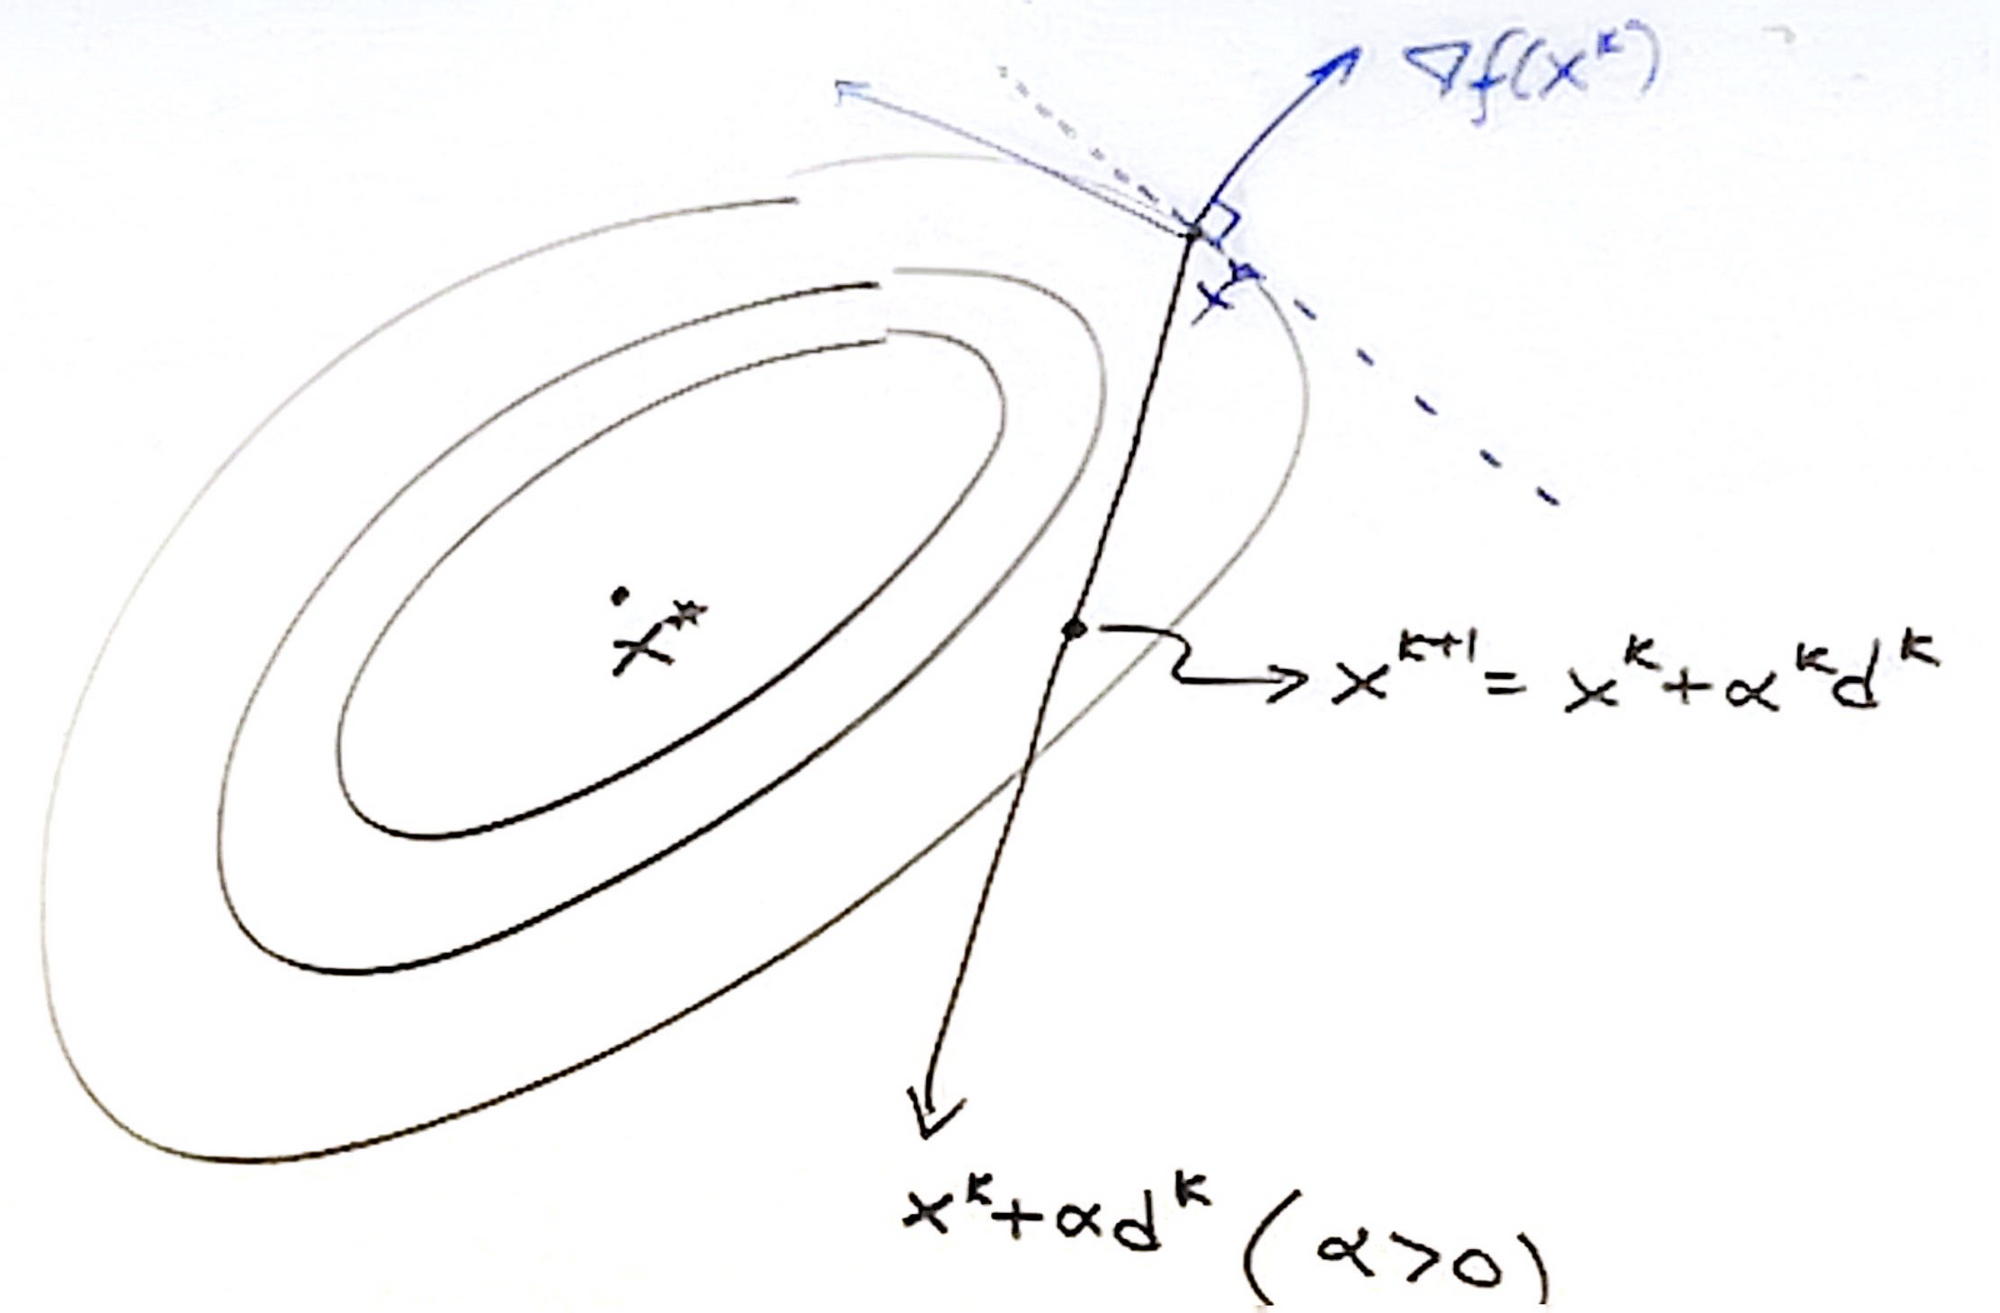 ∇f(xᴷ)
xᴷ
x*
xᴷ⁺¹ = xᴷ + αᴷdᴷ
xᴷ + αdᴷ (α>0)